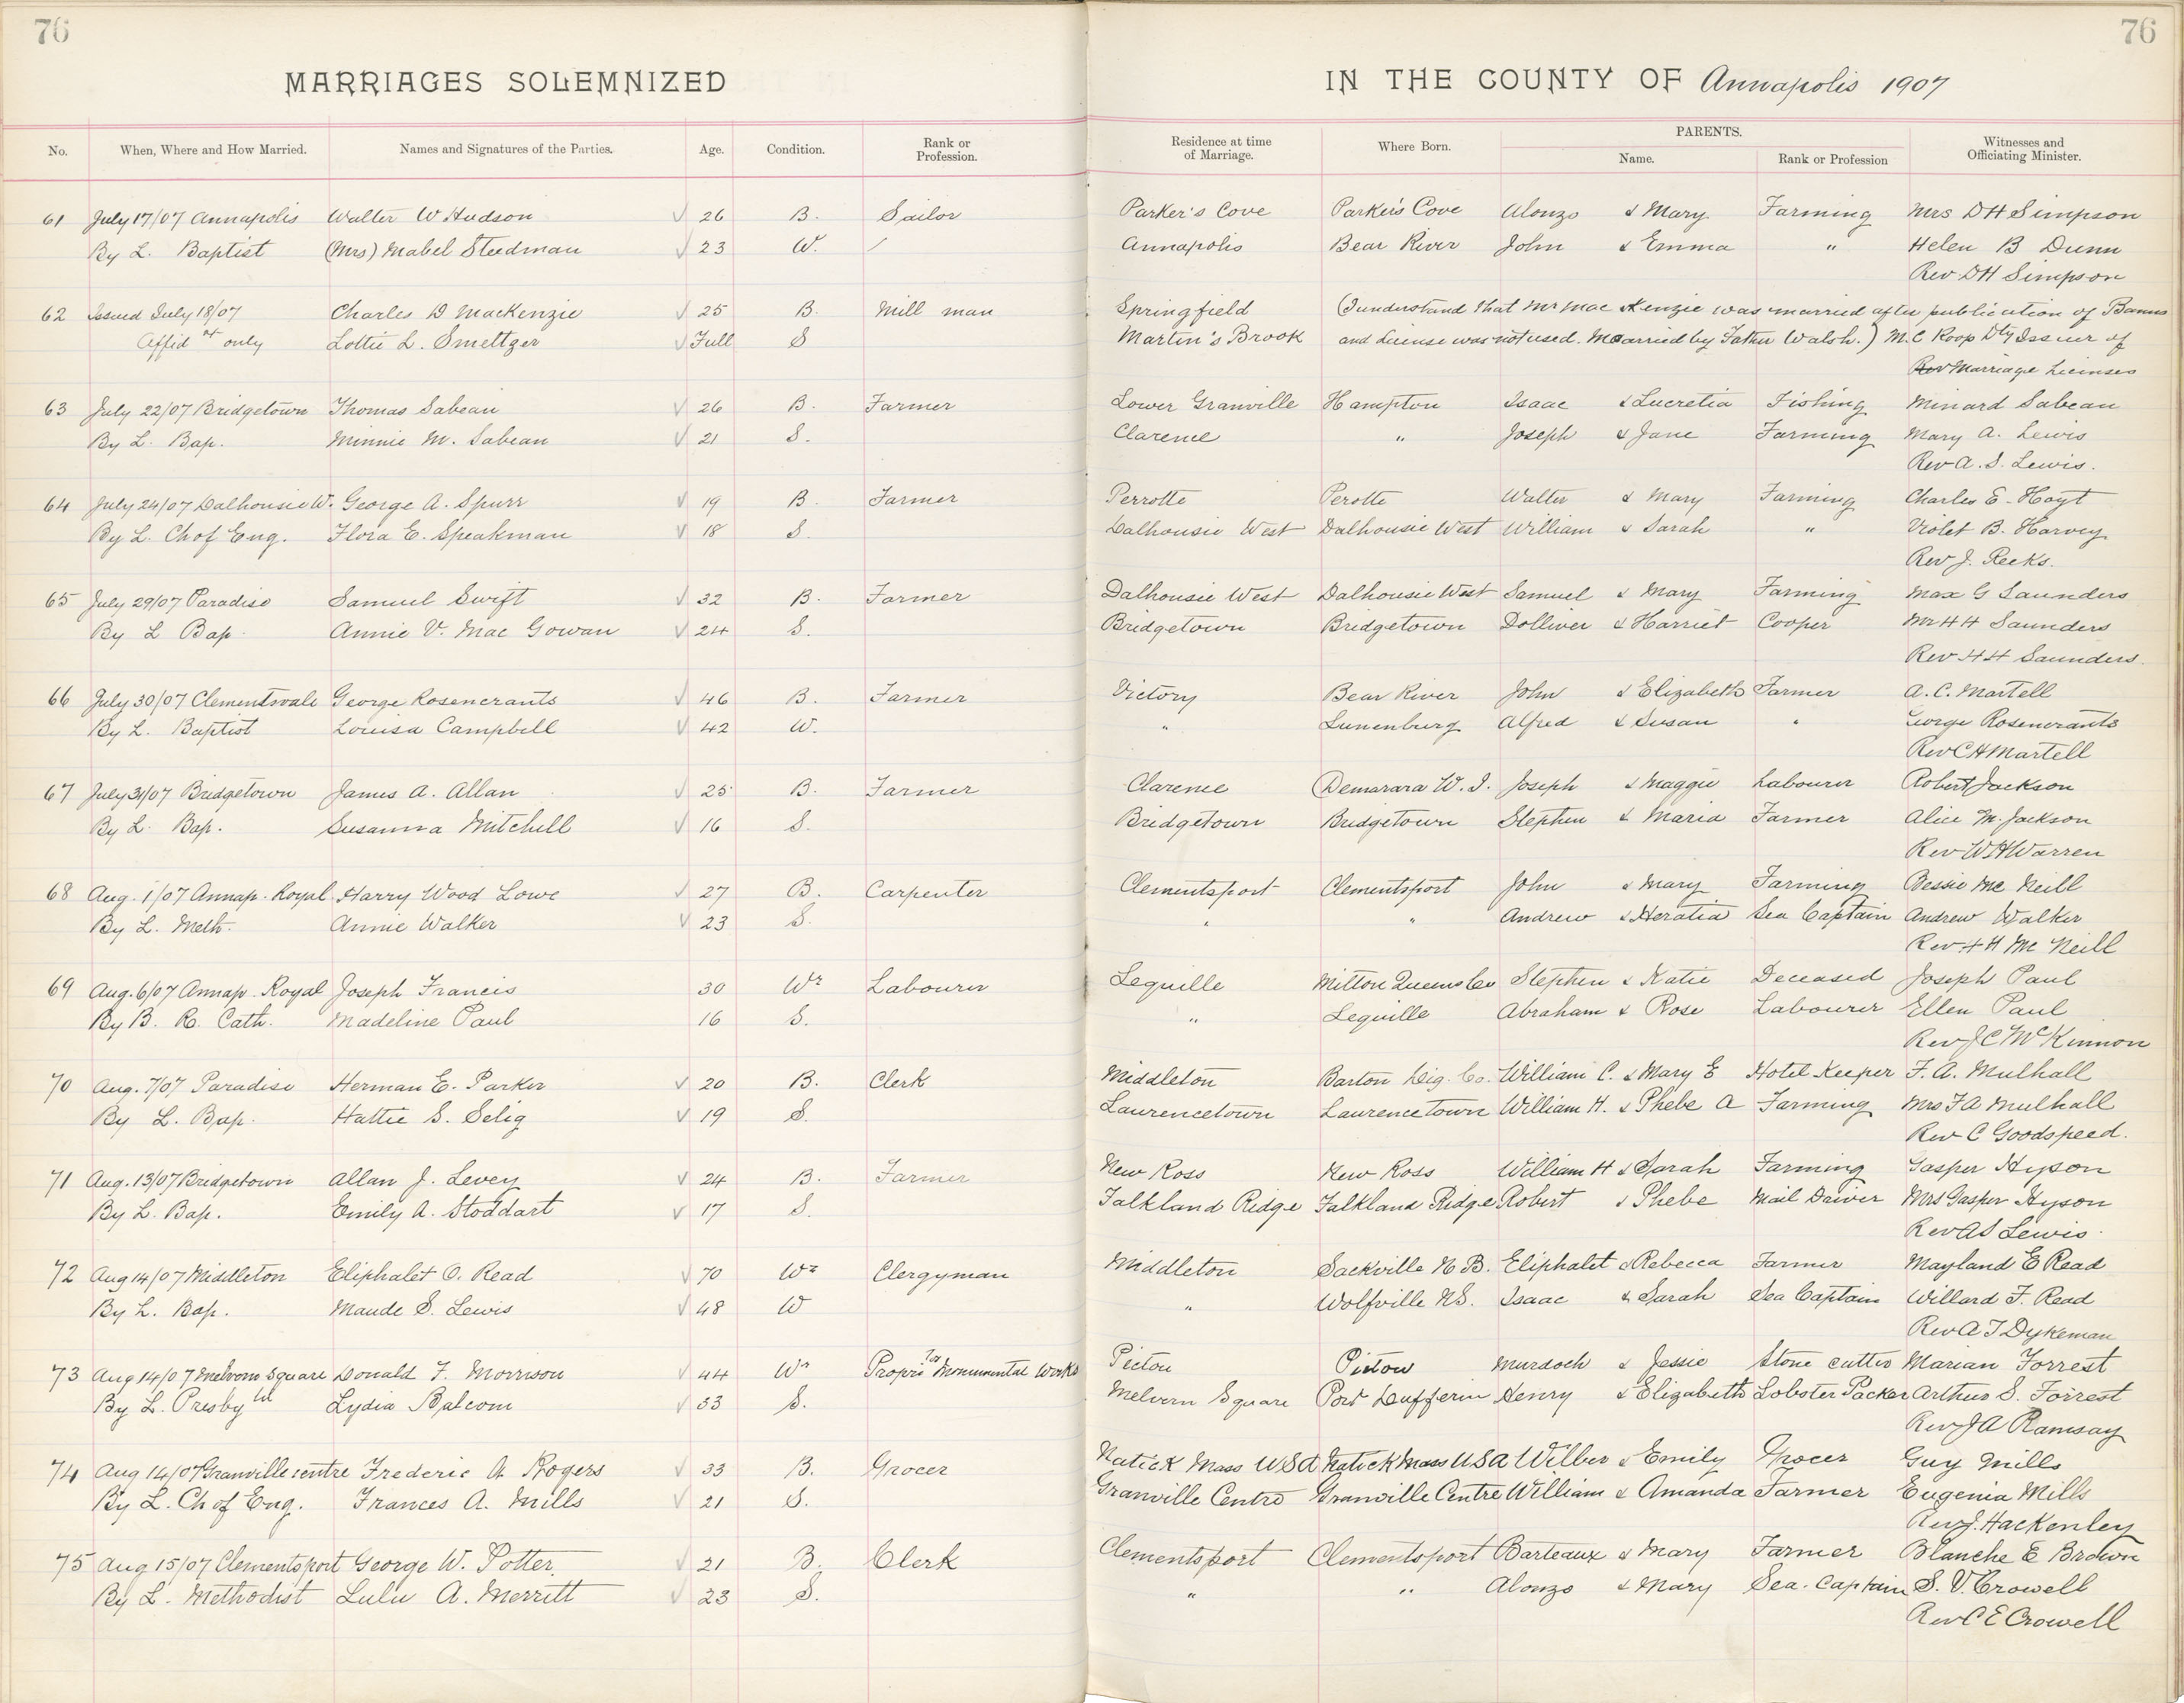 76
76
MARRIAGES SOLEMNIZED
IN THE COUNTY OF Annapolis 1907
No. When, Where and How Married. Names and Signatures of the Parties. Age. Condition. Rank or Profession. Residence at time of Marriage. Where Born. PARENTS. Name. Rank or Profession Witnesses and Officiating Minister.
61 July 17/07 Annapolis Walter W Hudson √ 26 B. Sailor Parker's Cove Parker's Cove Alonzo & Mary Farming Mrs DH Simpson
By L. Baptist (Mrs) Mabel Steedman √ 23 W. / Annapolis Bear River John & Emma " Helen B Dunn
Rev DH Simpson
62 Issued July 18/07 Charles D MacKenzie √ 25 B. Mill man Springfield (I understand that Mr MacKenzie was married after publication of Banns
Affid at only Lottie L. Smeltzer √ Full S Martin's Brook and License was not used. Married by Father Walsh.) M. C Roop Dty Issuer of
Marriage Licenses
63 July 22/07 Bridgetown Thomas Sabean √ 26 B. Farmer Lower Granville Hampton Isaac & Lucretia Fishing Minard Sabean
By L. Bap. Minnie M. Sabean √ 21 S. Clarence " Joseph & Jane Farming Mary A. Lewis
Rev A. S. Lewis.
64 July 24/07 Dalhousie W. George A. Spurr √ 19 B. Farmer Perrotte Perotte Walter & Mary Farming Charles E. Hoyt
By L. Ch of Eng. Flora E. Speakman √ 18 S. Dalhousie West Dalhousie West William & Sarah " Violet B. Harvey
Rev J. Reeks.
65 July 29/07 Paradise Samuel Swift √ 32 B. Farmer Dalhousie West Dalhousie West Samuel & Mary Farming Max G Saunders
By L Bap. Annie V. Mac Gowan √ 24 S. Bridgetown Bridgetown Dolliver & Harriet Cooper Mr HH Saunders
Rev HH Saunders.
66 July 30/07 Clementsvale George Rosencrants √ 46 B. Farmer Victory Bear River John & Elizabeth Farmer A. C. Martell
By L. Baptist Louisa Campbell √ 42 W. " Lunenburg Alfred & Susan " George Rosencrants
Rev CH Martell
67 July 31/07 Bridgetown James A. Allan √ 25 B. Farmer Clarence Demarara W. I. Joseph & Maggie Labourer Robert Jackson
By L. Bap. Susanna Mitchell √ 16 S. Bridgetown Bridgetown Stephen & Maria Farmer Alice M. Jackson
Rev WH Warren
68 Aug. 1/07 Annap. Royal Harry Wood Lowe √ 27 B. Carpenter Clementsport Clementsport John & Mary Farming Bessie Mc Neill
By L. Meth. Annie Walker √ 23 S. " " Andrew & Horatia Sea Captain Andrew Walker
Rev HH Mc Neill
69 Aug. 6/07 Annap. Royal Joseph Francis 30 Wr Labourer Lequille Milton Queens Co Stephen & Katie Deceased Joseph Paul
By B. R. Cath. Madeline Paul 16 S. " Lequille Abraham & Rose Labourer Ellen Paul
Rev JC McKinnon
70 Aug. 7/07 Paradise Herman E. Parker √ 20 B. Clerk Middleton Barton Dig. Co. William C. & Mary E Hotel Keeper F. A. Mulhall
By L. Bap. Hattie S. Selig √ 19 S. Laurencetown Laurencetown William H. & Phebe A Farming Mrs FA Mulhall
Rev C Goodspeed.
71 Aug. 13/07 Bridgetown Allan J. Levey √ 24 B. Farmer New Ross New Ross William H & Sarah Farming Gasper Hyson
By L. Bap. Emily A. Stoddart √ 17 S. Falkland Ridge Falkland Ridge Robert & Phebe Mail Driver Mrs Gasper Hyson
Rev AS Lewis.
72 Aug 14/07 Middleton Eliphalet O. Read √ 70 Wr Clergyman Middleton Sackville N B. Eliphalet & Rebecca Farmer Mayland E Read
By L. Bap. Maude S. Lewis √ 48 W " Wolfville NS. Isaac & Sarah Sea Captain Willard F. Read
Rev A T Dykeman
73 Aug 14/07 Melvern Square Donald F. Morrison √ 44 Wr Proprietor Monumental Works Pictou Pictou Murdoch & Jessie Stone cutter Marian Forrest
By L. Presbytn Lydia Balcom √ 33 S. Melvern Square Port Dufferin Henry & Elizabeth Lobster Packer Arthur S. Forrest
Rev JA Ramsay
74 Aug 14/07 Granville centre Frederic A Rogers √ 33 B. Grocer Natick Mass USA Natick Mass USA Wilber & Emily Grocer Guy Mills
By L. Ch of Eng. Frances A. Mills √ 21 S. Granville Centre Granville Centre William & Amanda Farmer Eugenia Mills
Rev J. Hackenley
75 Aug 15/07 Clementsport George W. Potter √ 21 B. Clerk Clementsport Clementsport Barteaux & Mary Farmer Blanche E Brown
By L. Methodist Lulu A. Merritt √ 23 S. " " Alonzo & Mary Sea. Captain S. V. Crowell
Rev C E Crowell